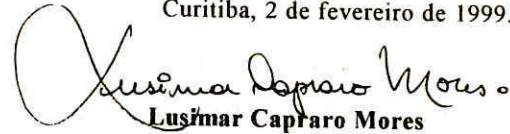 Curitiba, 2 de fevereiro de 1999.
Lusimar Capraro Mores
Lusimar Capraro Mores